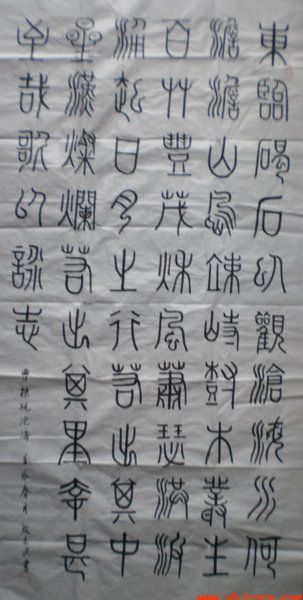 東臨碣石以觀滄海水何
澹澹山島竦峙樹木叢生
百艸豐茂秋風蕭瑟洪波
涌起日月之行若出其中
星漢燦爛若出其里幸甚
至哉歌以詠志
曹操觀滄海 壬辰春月